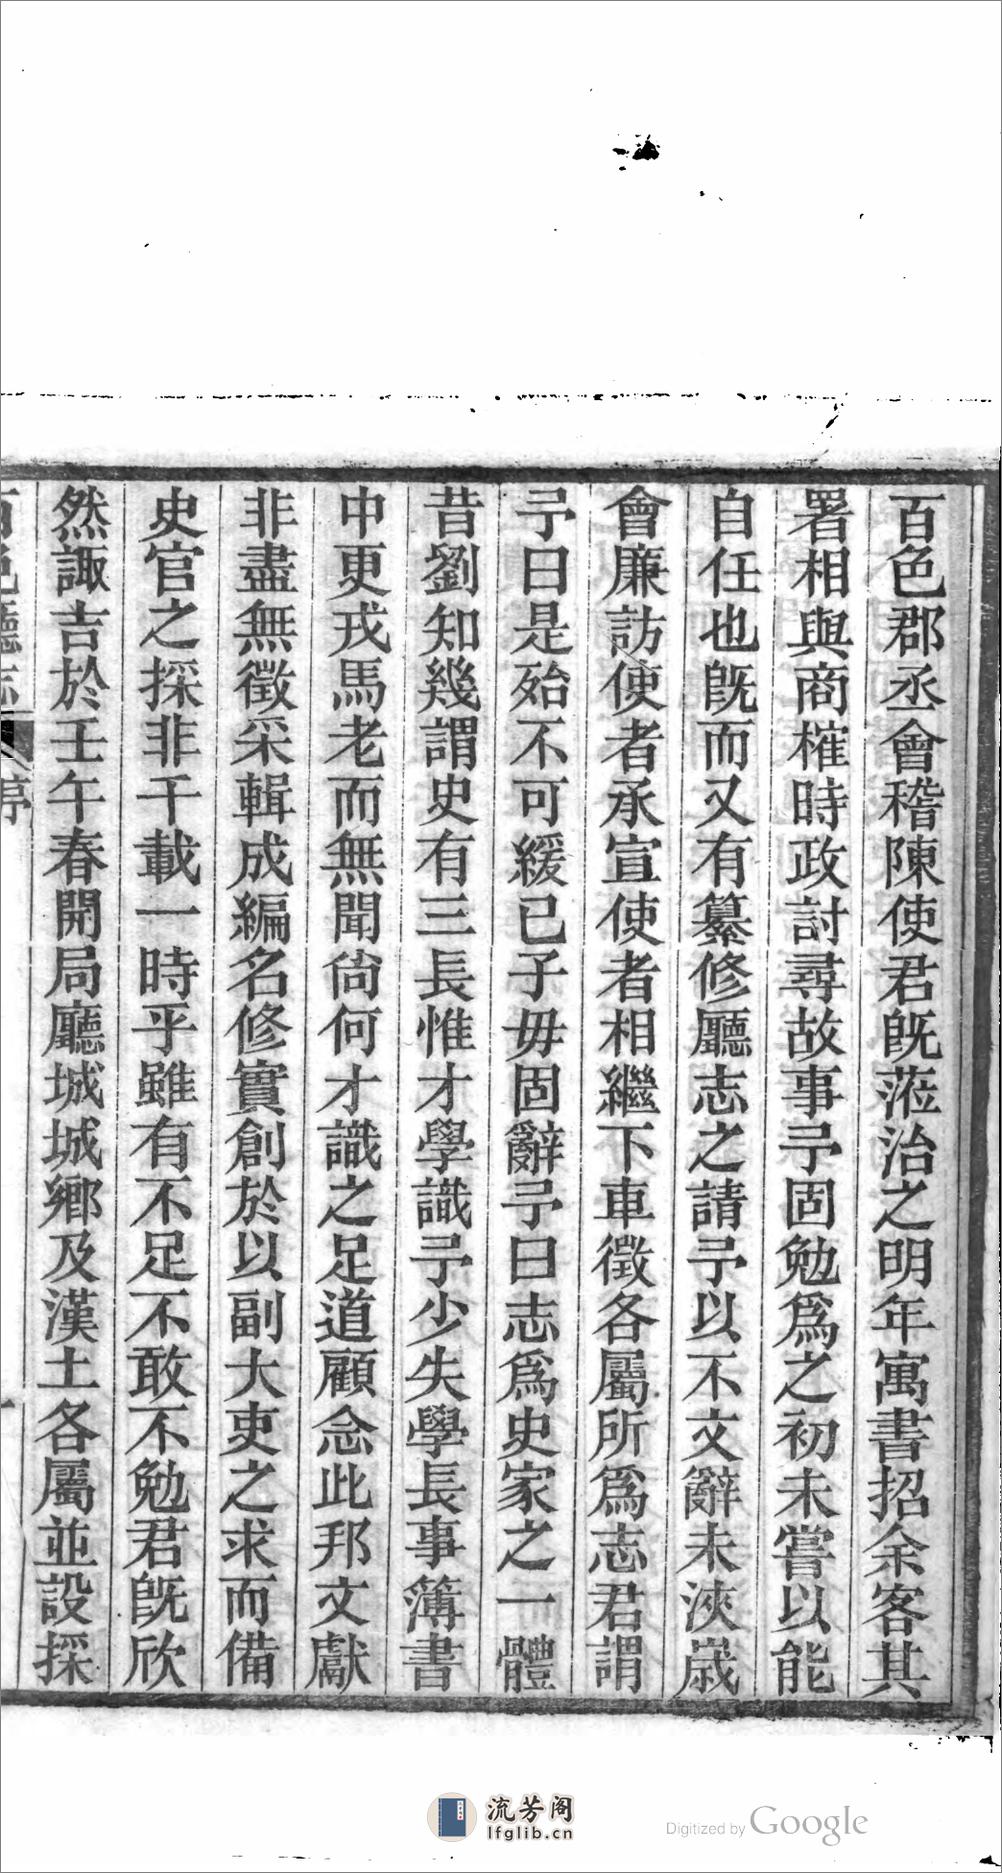 百色郡丞會稽陳使君旣蒞治之明年寓書招余客其
署相與商榷時政討尋故事予固勉爲之初未嘗以能
自任也旣而又有纂修廳志之請予以不文辭未浹歲
會廉訪使者承宣使者相繼下車徵各屬所爲志君謂
予曰是殆不可緩已子毋固辭予曰志爲史家之一體
昔劉知幾謂史有三長惟才學識予少失學長事簿書
中更戎馬老而無聞尙何才識之足道顧念此邦文獻
非盡無徵采輯成編名修實創於以副大吏之求而備
史官之採非千載一時乎雖有不足不敢不勉君旣欣
然諏吉於壬午春開局廳城城鄉及漢土各屬並設採
百色廳志 序 一
流芳阁
lfglib.cn
Digitized by Google